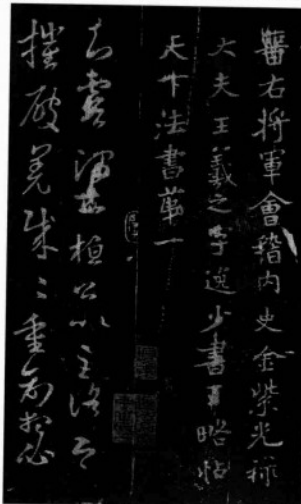 晉右將軍會稽內史金紫光祿
大夫王羲之字逸少書王略帖
天下法書第一
知虞帥書桓公以至洛今
摧破羌賊〻重創想必